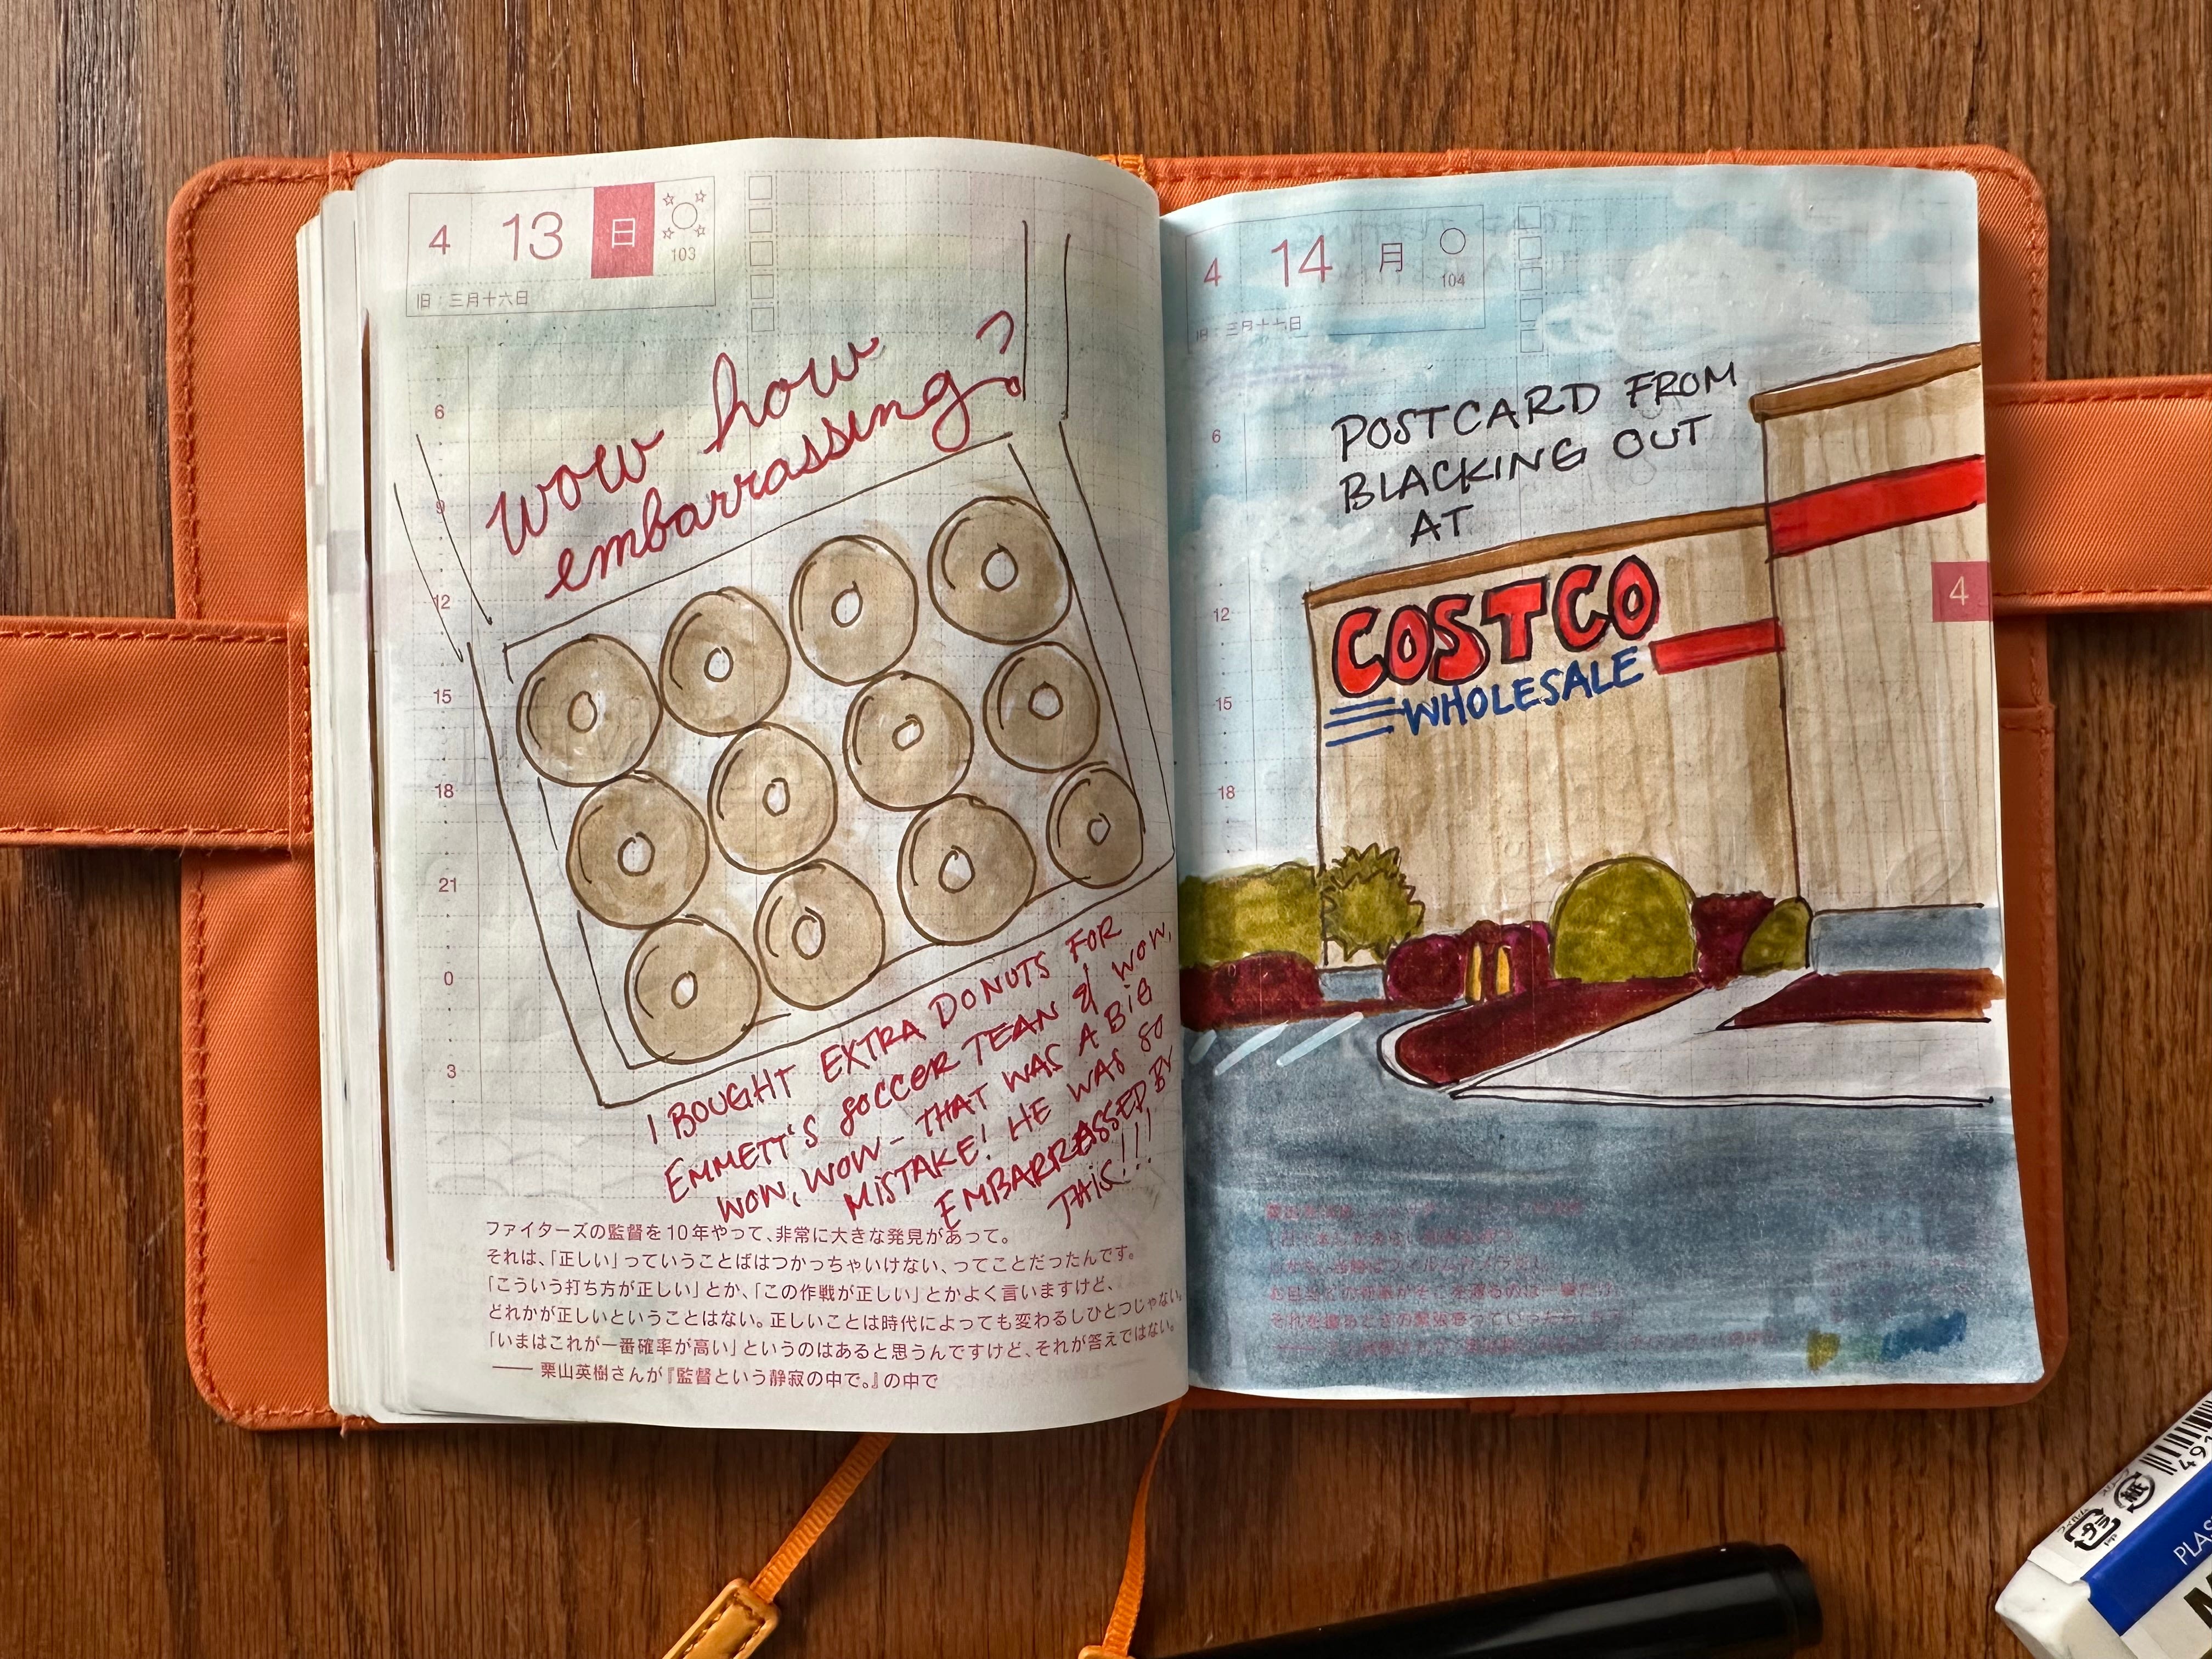 4 13 日
103
旧:三月十六日
wow how
embarrassing?
6
9
12
15
18
21
0
3
I BOUGHT EXTRA DONUTS FOR
EMMETT'S SOCCER TEAM & WOW,
WOW, WOW - THAT WAS A BIG
MISTAKE! HE WAS SO
EMBARRASSED BY
THIS!!!
ファイターズの監督を10年やって、非常に大きな発見があって。
それは、「正しい」っていうことばはつかっちゃいけない、ってことだったんです。
「こういう打ち方が正しい」とか、「この作戦が正しい」とかよく言いますけど、
どれかが正しいということはない。正しいことは時代によっても変わるしひとつじゃない。
「いまはこれが一番確率が高い」というのはあると思うんですけど、それが答えではない。
── 栗山英樹さんが『監督という静寂の中で。』の中で
4 14 月
104
旧:三月十七日
POSTCARD FROM
BLACKING OUT
AT
COSTCO
WHOLESALE
6
12
15
18
4
491
紙
プラ
PLAS